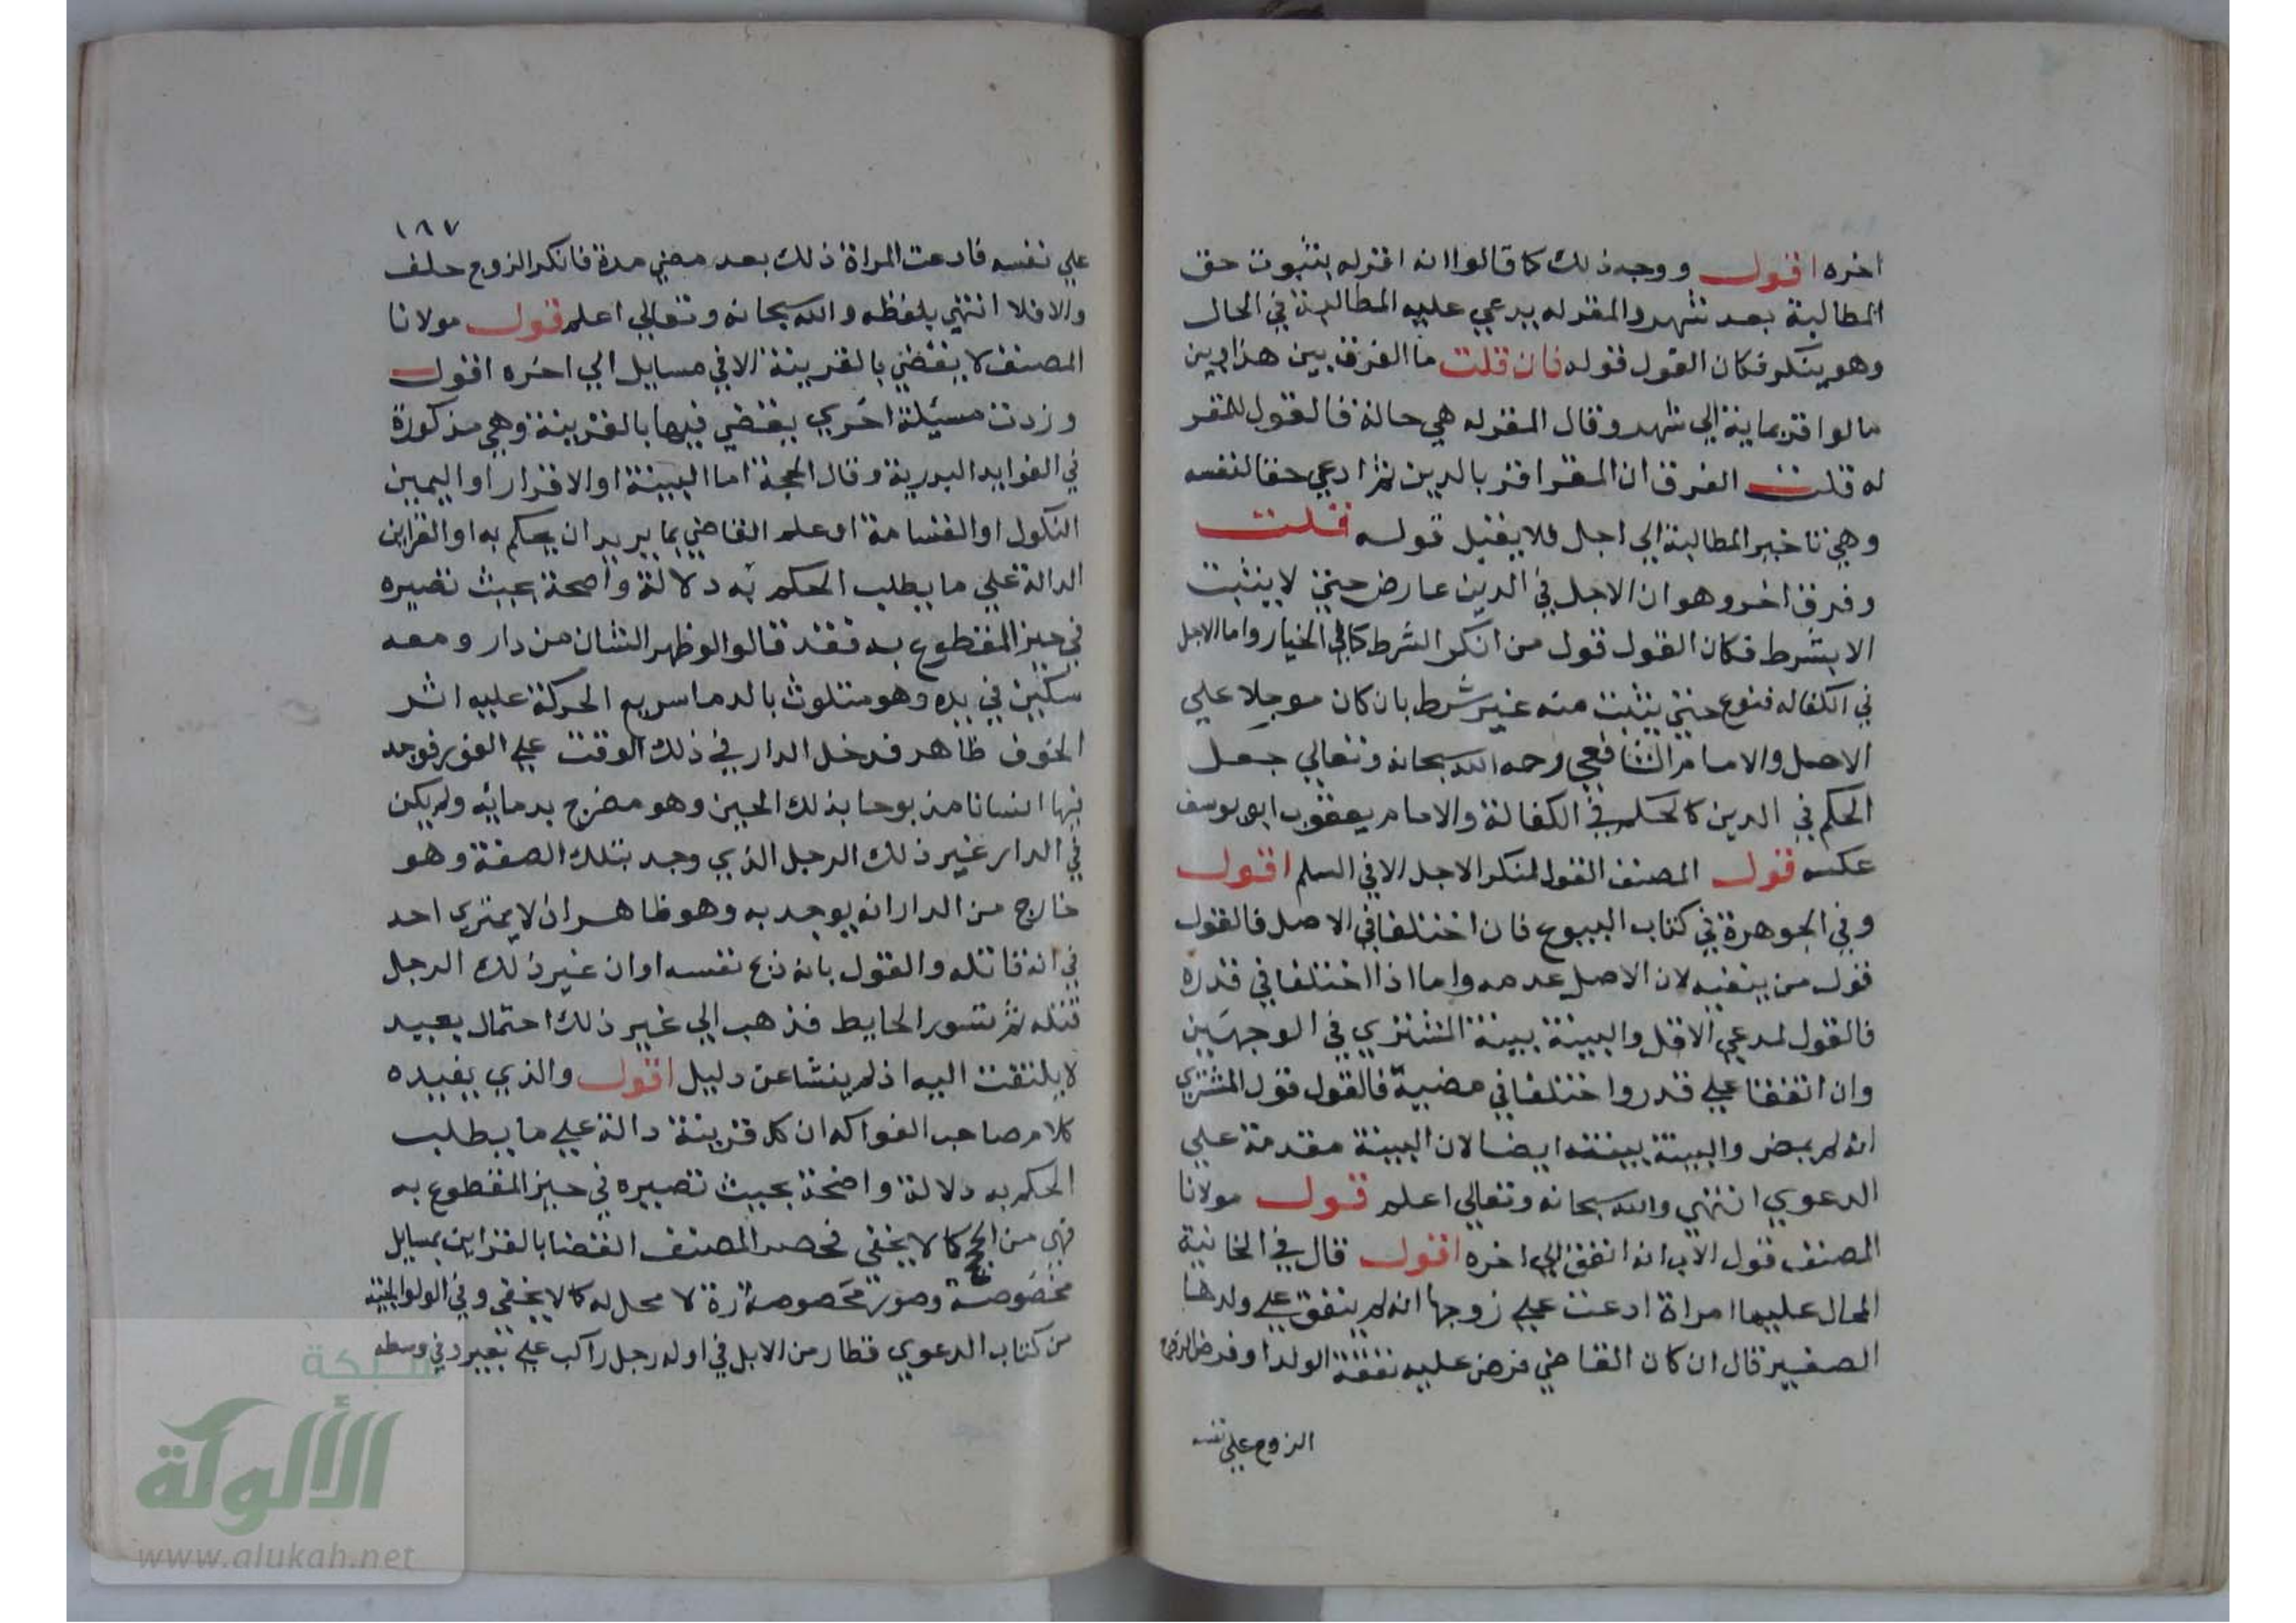 اخره اقول ووجه ذلك كما قالوا انه اقر له بثبوت حق
المطالبة بعد شهر والمقر له يدعي عليه المطالبة في الحال
وهو ينكر فكان القول قوله فان قلت ما الفرق بين هذا وبين
ما لو اقر بماية الي شهر وقال المقر له هي حالة فالقول للمقر
له قلت الفرق ان المقر اقر بالدين ثم ادعي حقا لنفسه
وهي تاخير المطالبة الي اجل فلا يقبل قوله قلت
وفرق اخر وهو ان الاجل في الدين عارض حتى لا يثبت
الا بشرط فكان القول قول من انكر الشرط كما في الخيار واما الاجل
في الكفاله فنوع حتى يثبت منه غير شرط بان كان موجلا علي
الاصل والامام الشافعي رحمه الله سبحانه وتعالي جعل
الحكم في الدين كالحكم في الكفالة والامام يعقوب ابو يوسف
عكسه قول المصنف القول لمنكر الاجل الا في السلم اقول
وفي الجوهرة في كتاب البيوع فان اختلفا في الاصل فالقول
قول من ينفيه لان الاصل عدمه واما اذا اختلفا في قدره
فالقول لمدعي الاقل والبينة بينة المشتري في الوجهين
وان اتفقا علي قدر واختلفا في مضيه فالقول قول المشتري
انه لم يمض والبينة بينته ايضا لان البينة مقدمة علي
الدعوي انتهي والله سبحانه وتعالي اعلم قول مولانا
المصنف قول الاب انه انفق الي اخره اقول قال في الخانية
المحال عليها امراة ادعت علي زوجها انه لم ينفق علي ولدها
الصغير قال ان كان القاضي فرض عليه نفقة الولد او فرض الزوج
الزوج علي نفسه
١٨٧
علي نفسه فادعت المراة ذلك بعد مضي مدة فانكر الزوج حلف
والا فلا انتهي بلفظه والله سبحانه وتعالي اعلم قول مولانا
المصنف لا يقضي بالقرينة الا في مسايل الي اخره اقول
وزدت مسئلة اخري يقضي فيها بالقرينة وهي مذكورة
في الفوايد البدرية وقال الحجة اما البينة او الاقرار او اليمين
النكول او القسامة او علم القاضي بما يريد ان يحكم به او القراين
الدالة علي ما يطلب الحكم به دلالة واضحة بحيث تصيره
في حيز المقطوع به فقد قالوا لو ظهر انسان من دار ومعه
سكين في يده وهو متلوث بالدما سريع الحركة عليه اثر
الخوف ظاهر فدخل الدار في ذلك الوقت علي الفور فوجد
فيها انسانا مذبوحا بذلك الحين وهو مضرج بدمائه ولم يكن
في الدار غير ذلك الرجل الذي وجد بتلك الصفة وهو
خارج من الدار انه يوخد به وهو ظاهر ان لا يمتري احد
في انه قاتله والقول بانه ذبح نفسه او ان غير ذلك الرجل
قتله ثم تسور الحايط فذهب الي غير ذلك احتمال بعيد
لا يلتفت اليه اذ لم ينشا عن دليل اقول والذي يفيده
كلام صاحب الفواكه ان كل قرينة دالة علي ما يطلب
الحكم به دلالة واضحة بحيث تصيره في حيز المقطوع به
فهي من الحجج كما لا يخفى فحصر المصنف القضا بالقراين بمسايل
مخصوصة وصور مخصوصة لا محل له كما لا يخفى وفي الولوالجية
من كتاب الدعوي قطار من الابل في اوله رجل راكب علي بعير وفي وسطه
شبكة
الألوكة
www.alukah.net